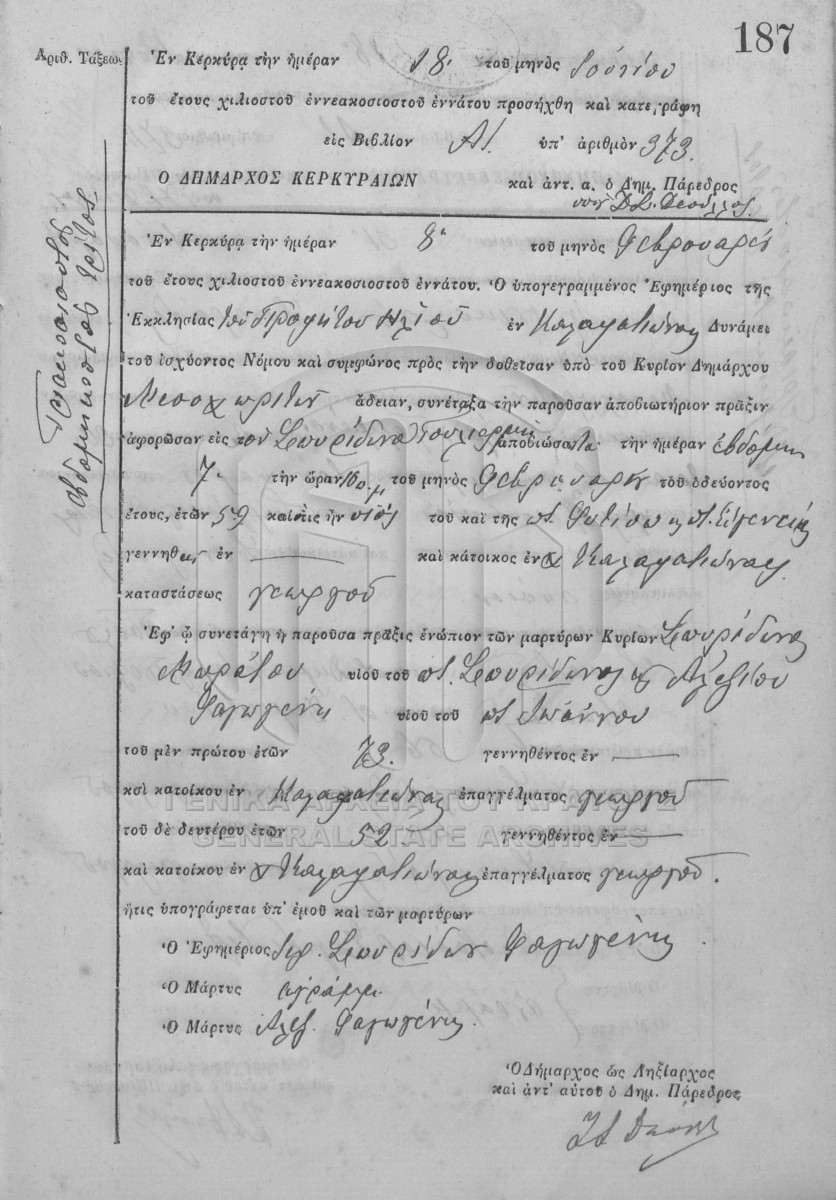 187
Αριθ. Τάξεως
Τριακοσιοστὸς
ἑβδομηκοστὸς τρίτος
Ἐν Κερκύρᾳ τὴν ἡμέραν 18. τοῦ μηνὸς Ἰουνίου
τοῦ ἔτους χιλιοστοῦ ἐννεακοσιοστοῦ ἐννάτου προσήχθη καὶ κατεγράφη
εἰς Βιβλίον Α/. ὑπ' ἀριθμὸν 373.
Ο ΔΗΜΑΡΧΟΣ ΚΕΡΚΥΡΑΙΩΝ καὶ ἀντ. α. ὁ Δημ. Πάρεδρος
Ἐν Κερκύρᾳ τὴν ἡμέραν 8ῃ τοῦ μηνὸς Φεβρουαρίου
τοῦ ἔτους χιλιοστοῦ ἐννεακοσιοστοῦ ἐννάτου. Ὁ ὑπογεγραμμένος Ἐφημέριος τῆς
Ἐκκλησίας τοῦ Προφήτου Ηλιοῦ ἐν Καλαφατιώνας Δυνάμει
τοῦ ἰσχύοντος Νόμου καὶ συμφώνος πρὸς τὴν δοθεῖσαν ὑπὸ τοῦ Κυρίου Δημάρχου
Μεσοχωριτῶν ἄδειαν, συνέταξα τὴν παροῦσαν ἀποβιωτήριον πρᾶξιν
ἀφορῶσαν εἰς τὸν Σπυρίδωνα ἀποβιώσαντα τὴν ἡμέραν ἑβδόμην
7. τὴν ὥραν 10 π.μ τοῦ μηνὸς Φεβρουαρίου τοῦ ὁδεύοντος
ἔτους, ἐτῶν 59 καὶ ὅστις ἦν υἱὸς τοῦ καὶ τῆς π. Φωτίου κ π. Εὐγενείας
γεννηθεὶς ἐν — καὶ κάτοικος ἐν Καλαφατιώνας
καταστάσεως γεωργοῦ
Ἐφ' ᾧ συνετάγη ἡ παροῦσα πρᾶξις ἐνώπιον τῶν μαρτύρων Κυρίων Σπυρίδωνα
υἱοῦ τοῦ π. Σπυρίδωνος κ Ἀλεξίου
Φαγωγένη υἱοῦ τοῦ π. Ἰωάννου
τοῦ μὲν πρώτου ἐτῶν 73. γεννηθέντος ἐν —
καὶ κατοίκου ἐν Καλαφατιώνας ἐπαγγέλματος γεωργοῦ
ΓΕΝΙΚΑ ΑΡΧΕΙΑ ΤΟΥ ΚΡΑΤΟΥΣ
τοῦ δὲ δευτέρου ἐτῶν 52. γεννηθέντος ἐν —
GENERAL STATE ARCHIVES
καὶ κατοίκου ἐν Καλαφατιώνας ἐπαγγέλματος γεωργοῦ.
ἥτις ὑπογράφεται ὑπ' ἐμοῦ καὶ τῶν μαρτύρων
Ὁ Ἐφημέριος Ἱερ. Σπυρίδων Φαγωγένης
Ὁ Μάρτυς ἀγράμμ.
Ὁ Μάρτυς Ἀλεξ. Φαγωγένης
Ὁ Δήμαρχος ὡς Ληξίαρχος
καὶ ἀντ' αὐτοῦ ὁ Δημ. Πάρεδρος